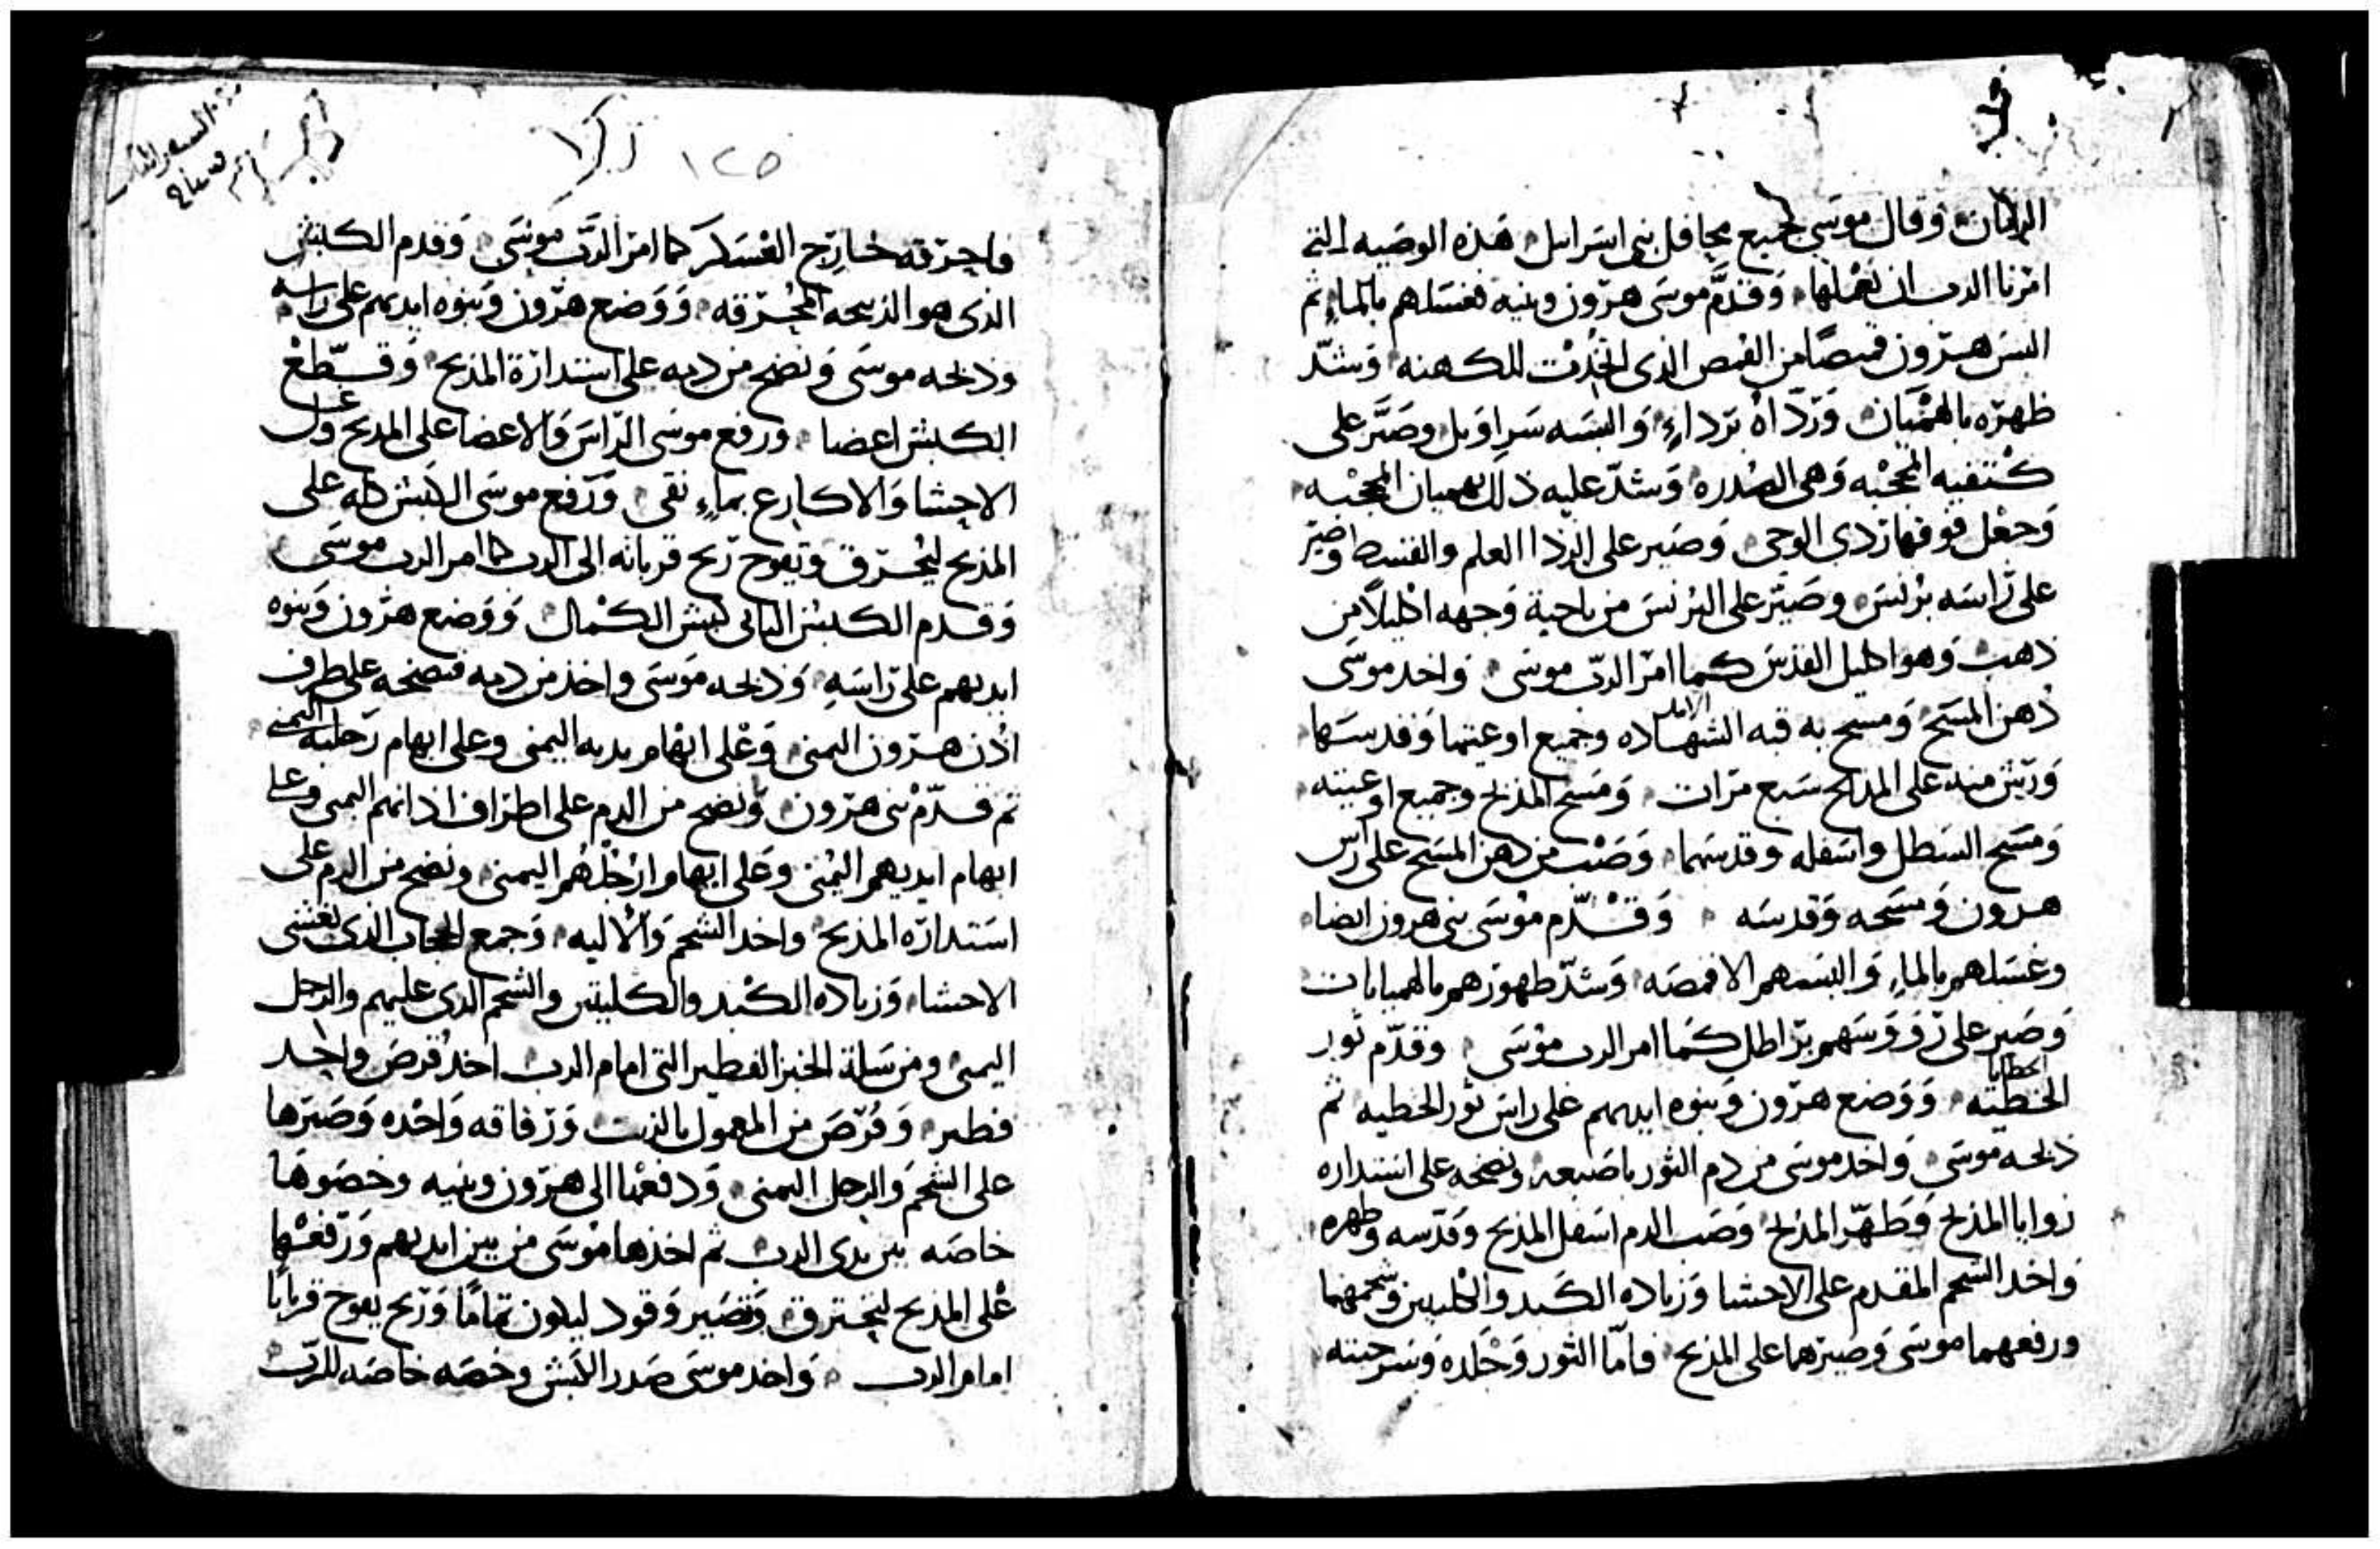 الزمان وقال موسى لجميع محافل بنى اسرايل هذه الوصيه التى
امرنا الرب ان نعملها وَقدَّم موسى هرون وبنيه فغسلهم بالماءِ ثم
البس هرون قميصًا من القمص الذى اتخذت للكهنه وَشدّ
ظهره بالهميَان وَرَدّاهُ برداءٍ وَالبسَه سَراويل وصَيَّر على
كتفيه المحجْبه وَهى الصُدره وَشدّ عليه ذلك بهميان المحجبه
وَجعَل فوقها زدى الوحى وَصَير على الرذا العلم والقسط وصَيّر
على رَاسَه بُرنسَ وصَيّر على البُرنسَ من ناحية وَجهه اكليلاً من
ذهب وَهو اكليل القدس كما امَر الربّ موسَى وَاخد موسَى
دُهن المسَح وَمسح به قبه الشهاده وجميع اوعيتها وَقدسَها
وَرَش منه على المذبح سَبع مَرات وَمَسَح المذبح وجميع اوعيته
وَمَسَح السَطل واسَفله وقدسَهما وَصَبّ من دهن المسَح على رَاس
هرون وَمسَحه وَقدسَه وَقدّم موُسَى بنى هرون ايضا
وغسَلهم بالماءِ وَالبسَهم الاقمصَه وَشدّ ظهورَهم بالهميانات
وَصَير على رَوَوسَهم برَاطل كما امر الرب موُسَى وقدّم ثور
الخطيه وَوَضع هرَون وَبنوه ايديهم على راسَ ثَور الخطيه ثم
ذبحه موسَى وَاخد موسَى من دم الثور باصَبعه ونضحه على استداره
زوايا المذبح وَطَهّر المذبح وَصَب الدم اسَفل المذبح وَقدّسه وطهره
وَاخد الشحم المقدم على الاحشا وَزياده الكَبد والكليتين وَشحمهما
ورفعهما موسَى وَصيرهما على المذبح فامّا الثور وَجَلده وَسَرجينه
١٢٥
فاحرَقه خارَج العَسَكر كما امرَ الرَّب موسَى وَقدم الكبش
الذى هو الذبيحه المحُرَقه وَوَضع هرَون وَبنوه ايديهم على راسه
وذبحه موسَى وَنضح من دمه على استدارَة المذبح وَقطّع
الكبش اعضا ورفع موسَى الرّاسَ وَالاعضا على المذبح وغسل
الاحشا وَالاكارع بماءٍ نقى وَرَفع موسَى الكبش كله على
المذبح ليحُترق وَتفوح رَيح قربانه الى الرب كما امر الرب موسَى
وَقدم الكبش الثانى كبش الكمال وَوَضع هرَون وَبنوه
ايديهم على رَاسَهِ وَذبحه مَوسَى واخذ من دمه فنضحه على طرف
اذن هرَون اليمنى وَعَلى ابهام يديه اليمنى وعلى ابهام رَجليه اليمنى
ثم قدّمَ بنى هرَون وَنضح من الدم على اطرَاف اذانهم اليمنى وعلى
ابهام ايديهم اليُمنى وَعَلى ابهام ارَجُلهُم اليمنى ونضح من الدم على
اسَتدارَه المذبح واخد الشحم وَالاليه وَجمع الحجاب الذى يغشى
الاحشا وَزياده الكبد والكليتين والشحم الذى عليهم والرجل
اليمنى ومن سَلة الخبز الفطير التى امام الرب اخد قُرصَ واحد
فطير وَقُرَصَ من المعمول بالزيت وَرَقاقه وَاحَده وَصَيرَها
على الشحَم وَالرجل اليمنى وَدفعها الى هرَون وبنيه وخصَوها
خاصَه بين يدى الرب ثم اخذها موُسَى من بين ايديهم وَرَفعَها
عَلى المذبح ليحترق وَتصَير وَقود ليكون تمامًا وَرَيح يفوح قربانًا
امام الرب وَاخد موسىَ صَدر الكبش وخصَه خاصَه للرَبّ